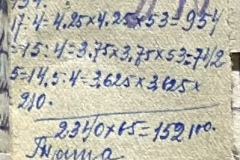 17:4=4.25×4.25×53=954
=15:4=3.75×3.75×53=742
5=14,5:4=3,625×3,625×
210.
2340×65=152100.